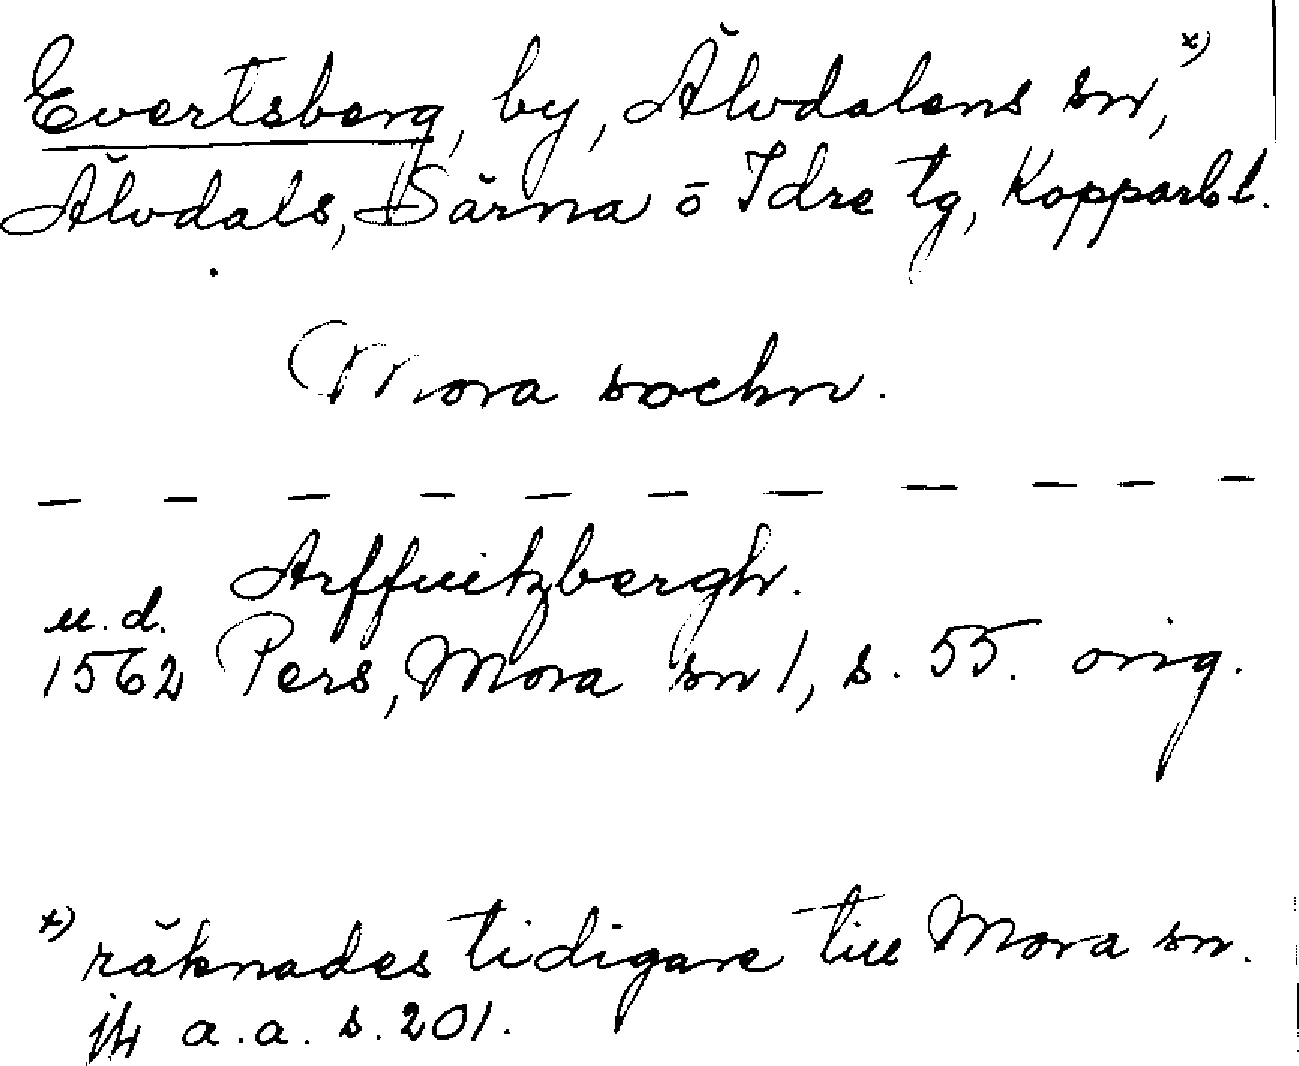 Evertsberg, by, Älvdalens sn, x)
Älvdals, Särna o Idre tg, Kopparb l.
Mora sochn.
Arffuitzbergh.
u.d.
1562 Pers, Mora sn 1, s. 55. orig.
x) räknades tidigare till Mora sn.
jfr a.a. s. 201.